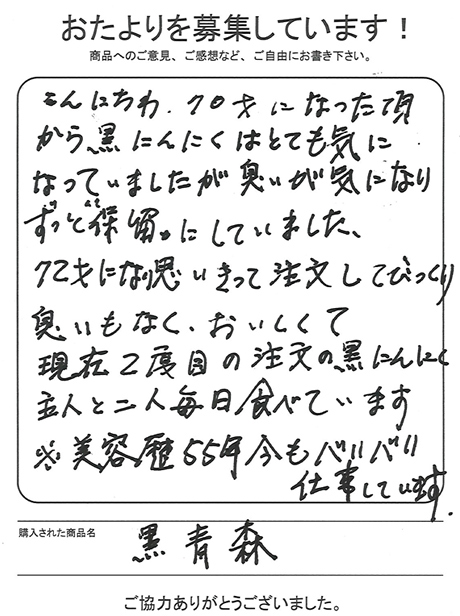 おたよりを募集しています！
商品へのご意見、ご感想など、ご自由にお書き下さい。
こんにちわ．70才になった頃
から黒にんにくはとても気に
なっていましたが臭いが気になり
ずっと保留にしていました、
72才になり思いきって注文してびっくり
臭いもなく、おいしくて
現在2度目の注文の黒にんにく
主人と二人毎日食べています
※美容歴55年今もバリバリ
仕事しています．
購入された商品名
黒青森
ご協力ありがとうございました。